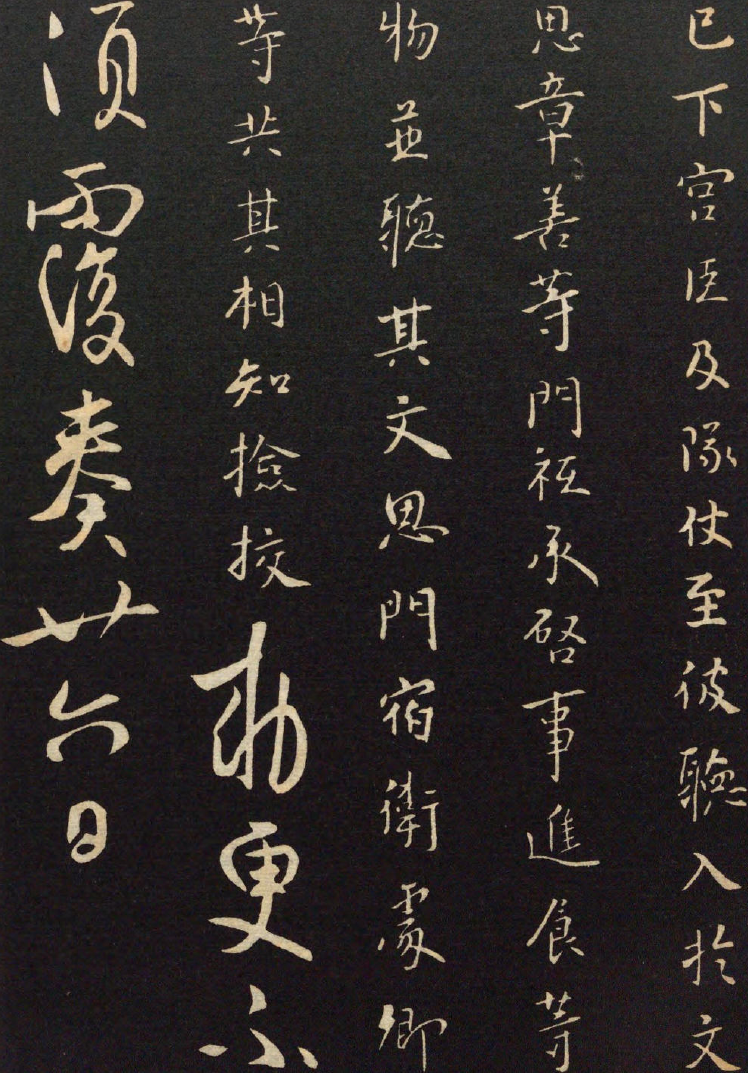 已下宫臣及隊仗至彼聽入於文
思章善等門祗承啓事進食等
物並聽其文思門宿衛處卿
等共其相知撿挍勅更不
須覆奏廿六日